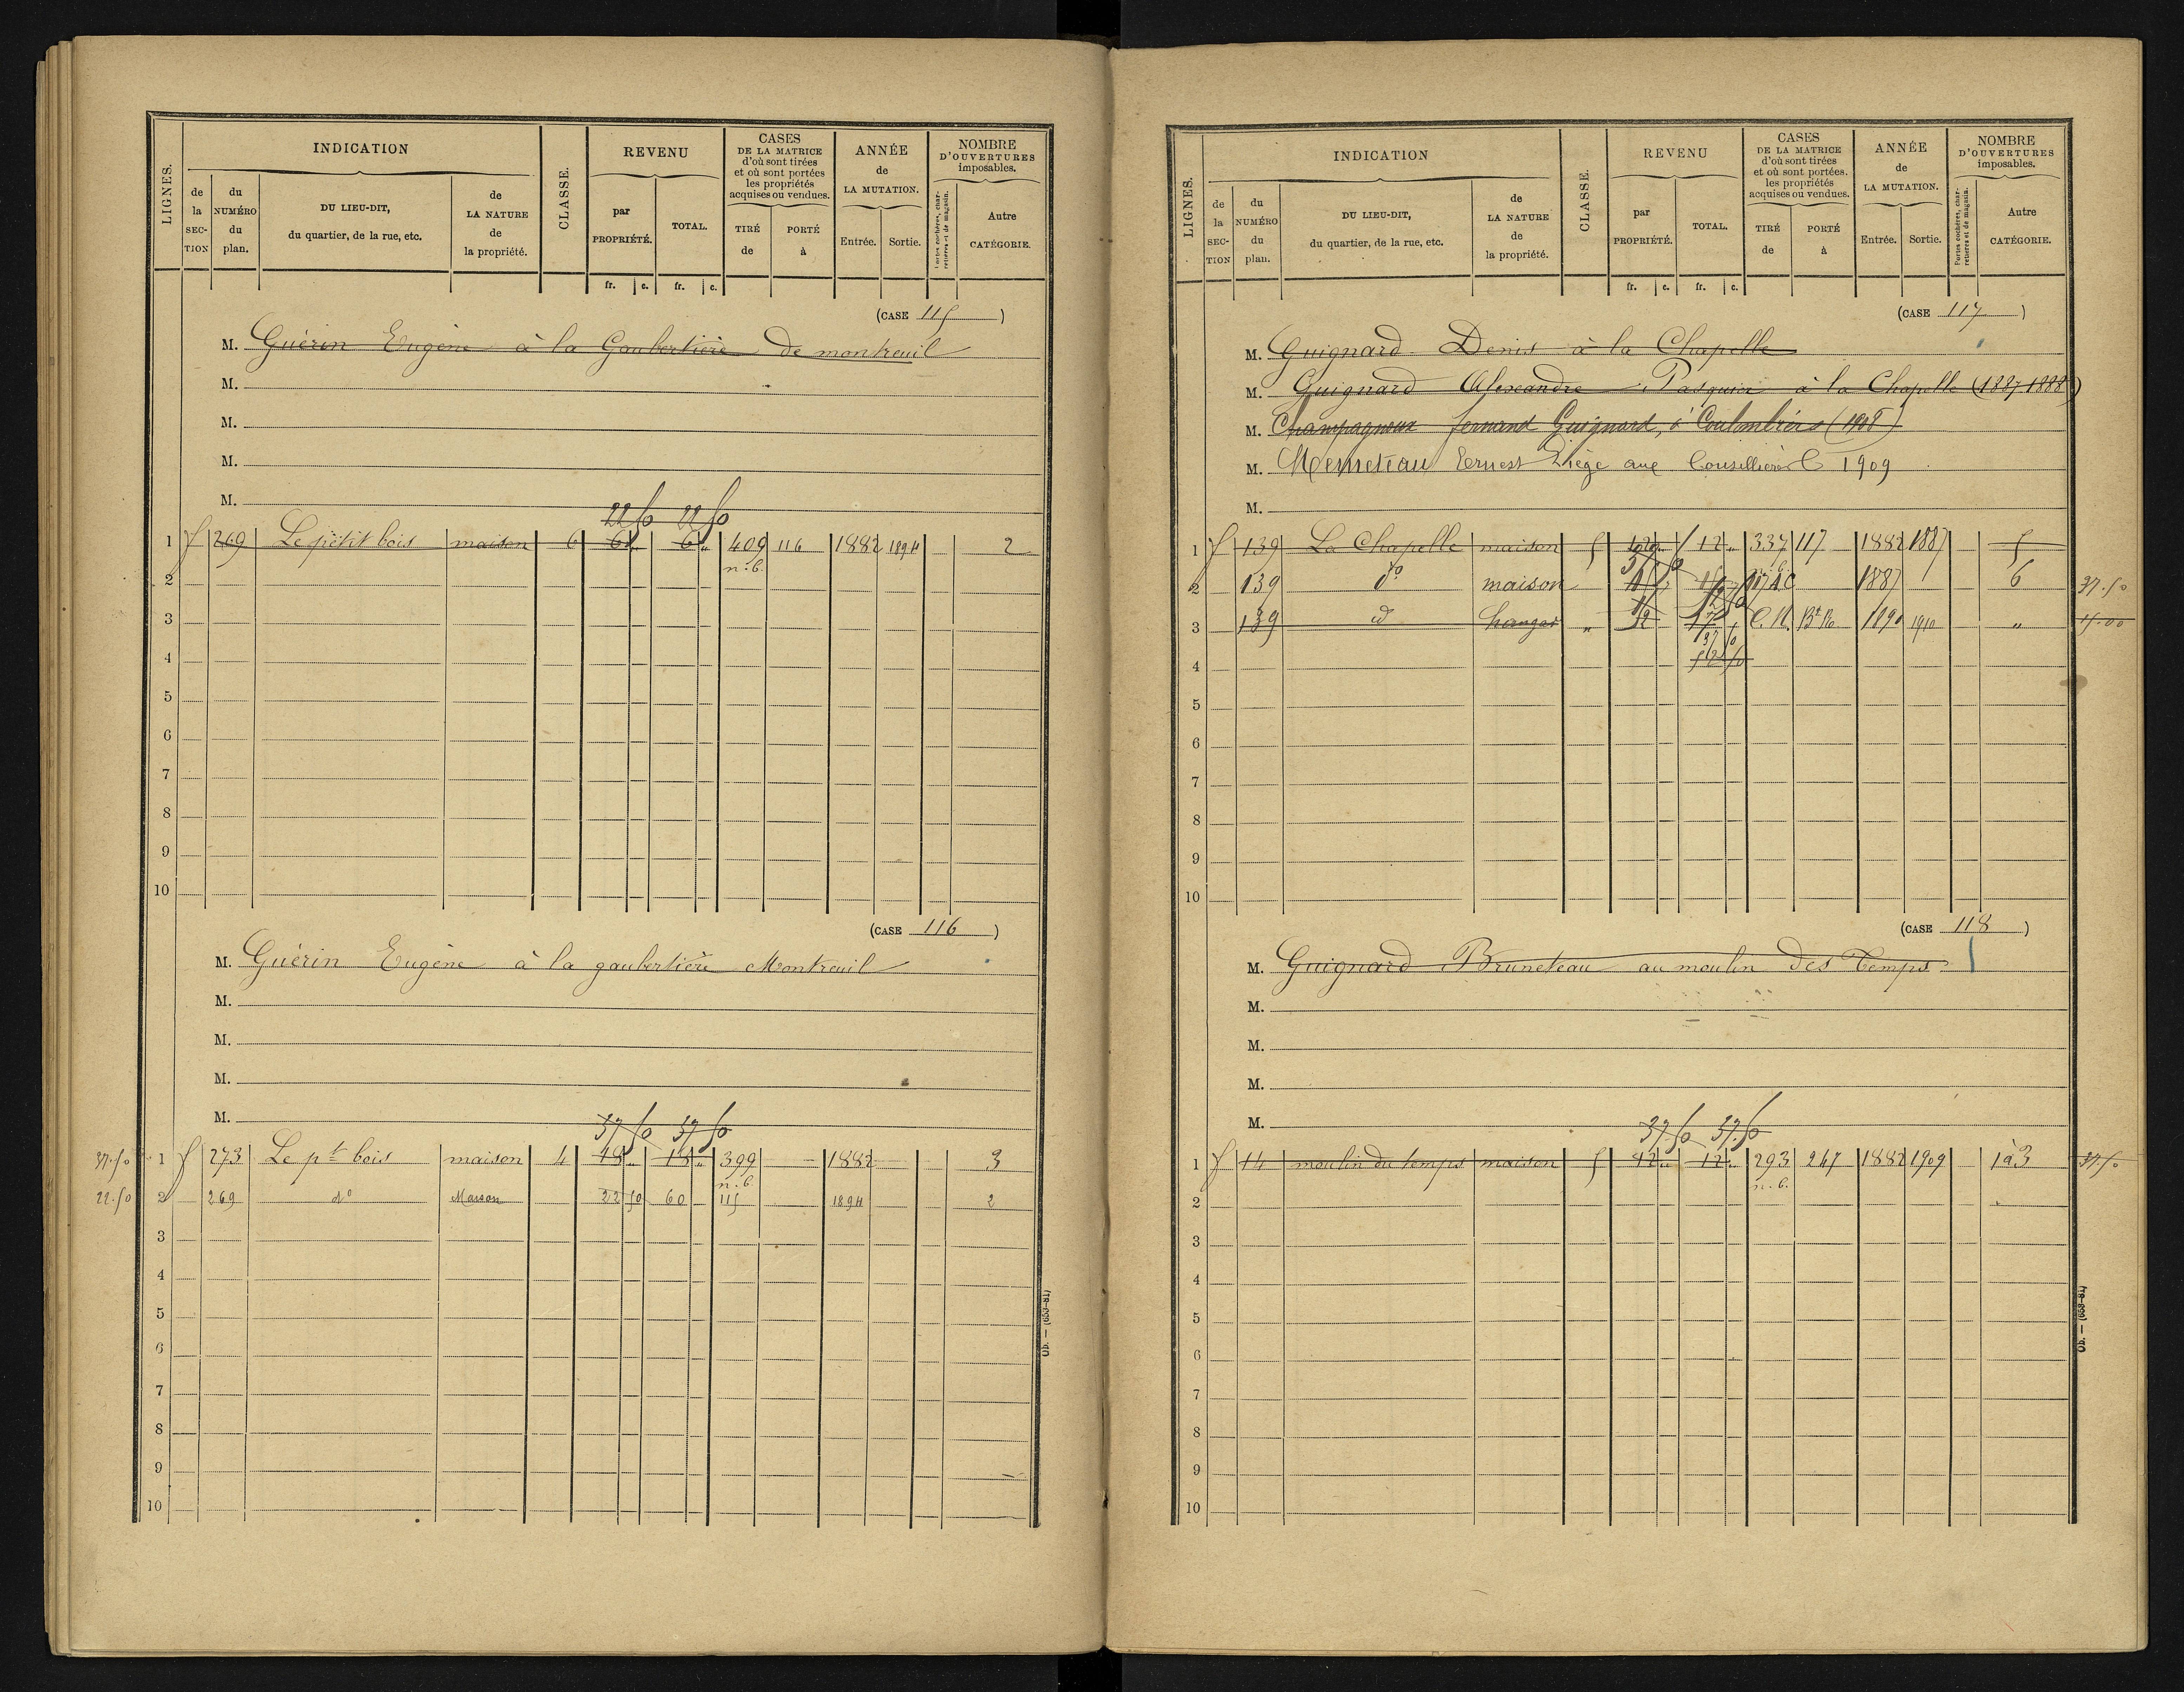 LIGNES.
INDICATION
de la SECTION
du NUMÉRO du plan.
DU LIEU-DIT, du quartier, de la rue, etc.
de LA NATURE de la propriété.
CLASSE.
REVENU
par PROPRIÉTÉ.
TOTAL.
CASES DE LA MATRICE d'où sont tirées et où sont portées les propriétés acquises ou vendues.
TIRÉ de
PORTÉ à
ANNÉE de LA MUTATION.
Entrée. Sortie.
NOMBRE D'OUVERTURES imposables.
Portes cochères, charretières et de magasin.
Autre CATÉGORIE.
fr. c. fr. c.
(CASE 115)
M. Guérin Eugène à la Gaubertière de montreuil
M.
M.
M.
M.
22 50 22 50
1 f 269 Le petit bois maison 6 6 " 6 " 409 116 1882 1894 2
n.b.
2
3
4
5
6
7
8
9
10
(CASE 116)
M. Guérin Eugène à la gaubertière Montreuil
M.
M.
M.
M.
37 50 37 50
37.50 1 f 273 Le pt bois maison 4 18 " 18 " 399 1882 3
n.b.
22.50 2 269 do Maison 22 50 60 115 1894 2
3
4
5
6
7
8
9
10
Ob. — (659-81)
LIGNES.
INDICATION
de la SECTION
du NUMÉRO du plan.
DU LIEU-DIT, du quartier, de la rue, etc.
de LA NATURE de la propriété.
CLASSE.
REVENU
par PROPRIÉTÉ.
TOTAL.
CASES DE LA MATRICE d'où sont tirées et où sont portées. les propriétés acquises ou vendues.
TIRÉ de
PORTÉ à
ANNÉE de LA MUTATION.
Entrée. Sortie.
NOMBRE D'OUVERTURES imposables.
Portes cochères, charretières et de magasin.
Autre CATÉGORIE.
fr. c. fr. c.
(CASE 117)
M. Guignard Denis à la Chapelle
M. Guignard Alexandre Pasquier à la Chapelle (1887-1888)
M. Champagneux fernand Guignard, à Coulombiers (1908)
M. Menneteau Ernest Liège aux 1909
M.
1 f 139 La Chapelle maison 5 12 " 337 117 1882 1887 5
2 139 do maison 1887 6 37.50
3 139 d hangar " 12 C.N. 1890 1910 " 15-00
4
5
6
7
8
9
10
(CASE 118)
M. Guignard Bruneteau au moulin des Temps
M.
M.
M.
M.
37.50 37.50
1 f 14 moulin du temps maison 5 12 " 12 " 293 247 1882 1909 1à3 37.50
n.b.
2
3
4
5
6
7
8
9
10
Ob. — (659-81)